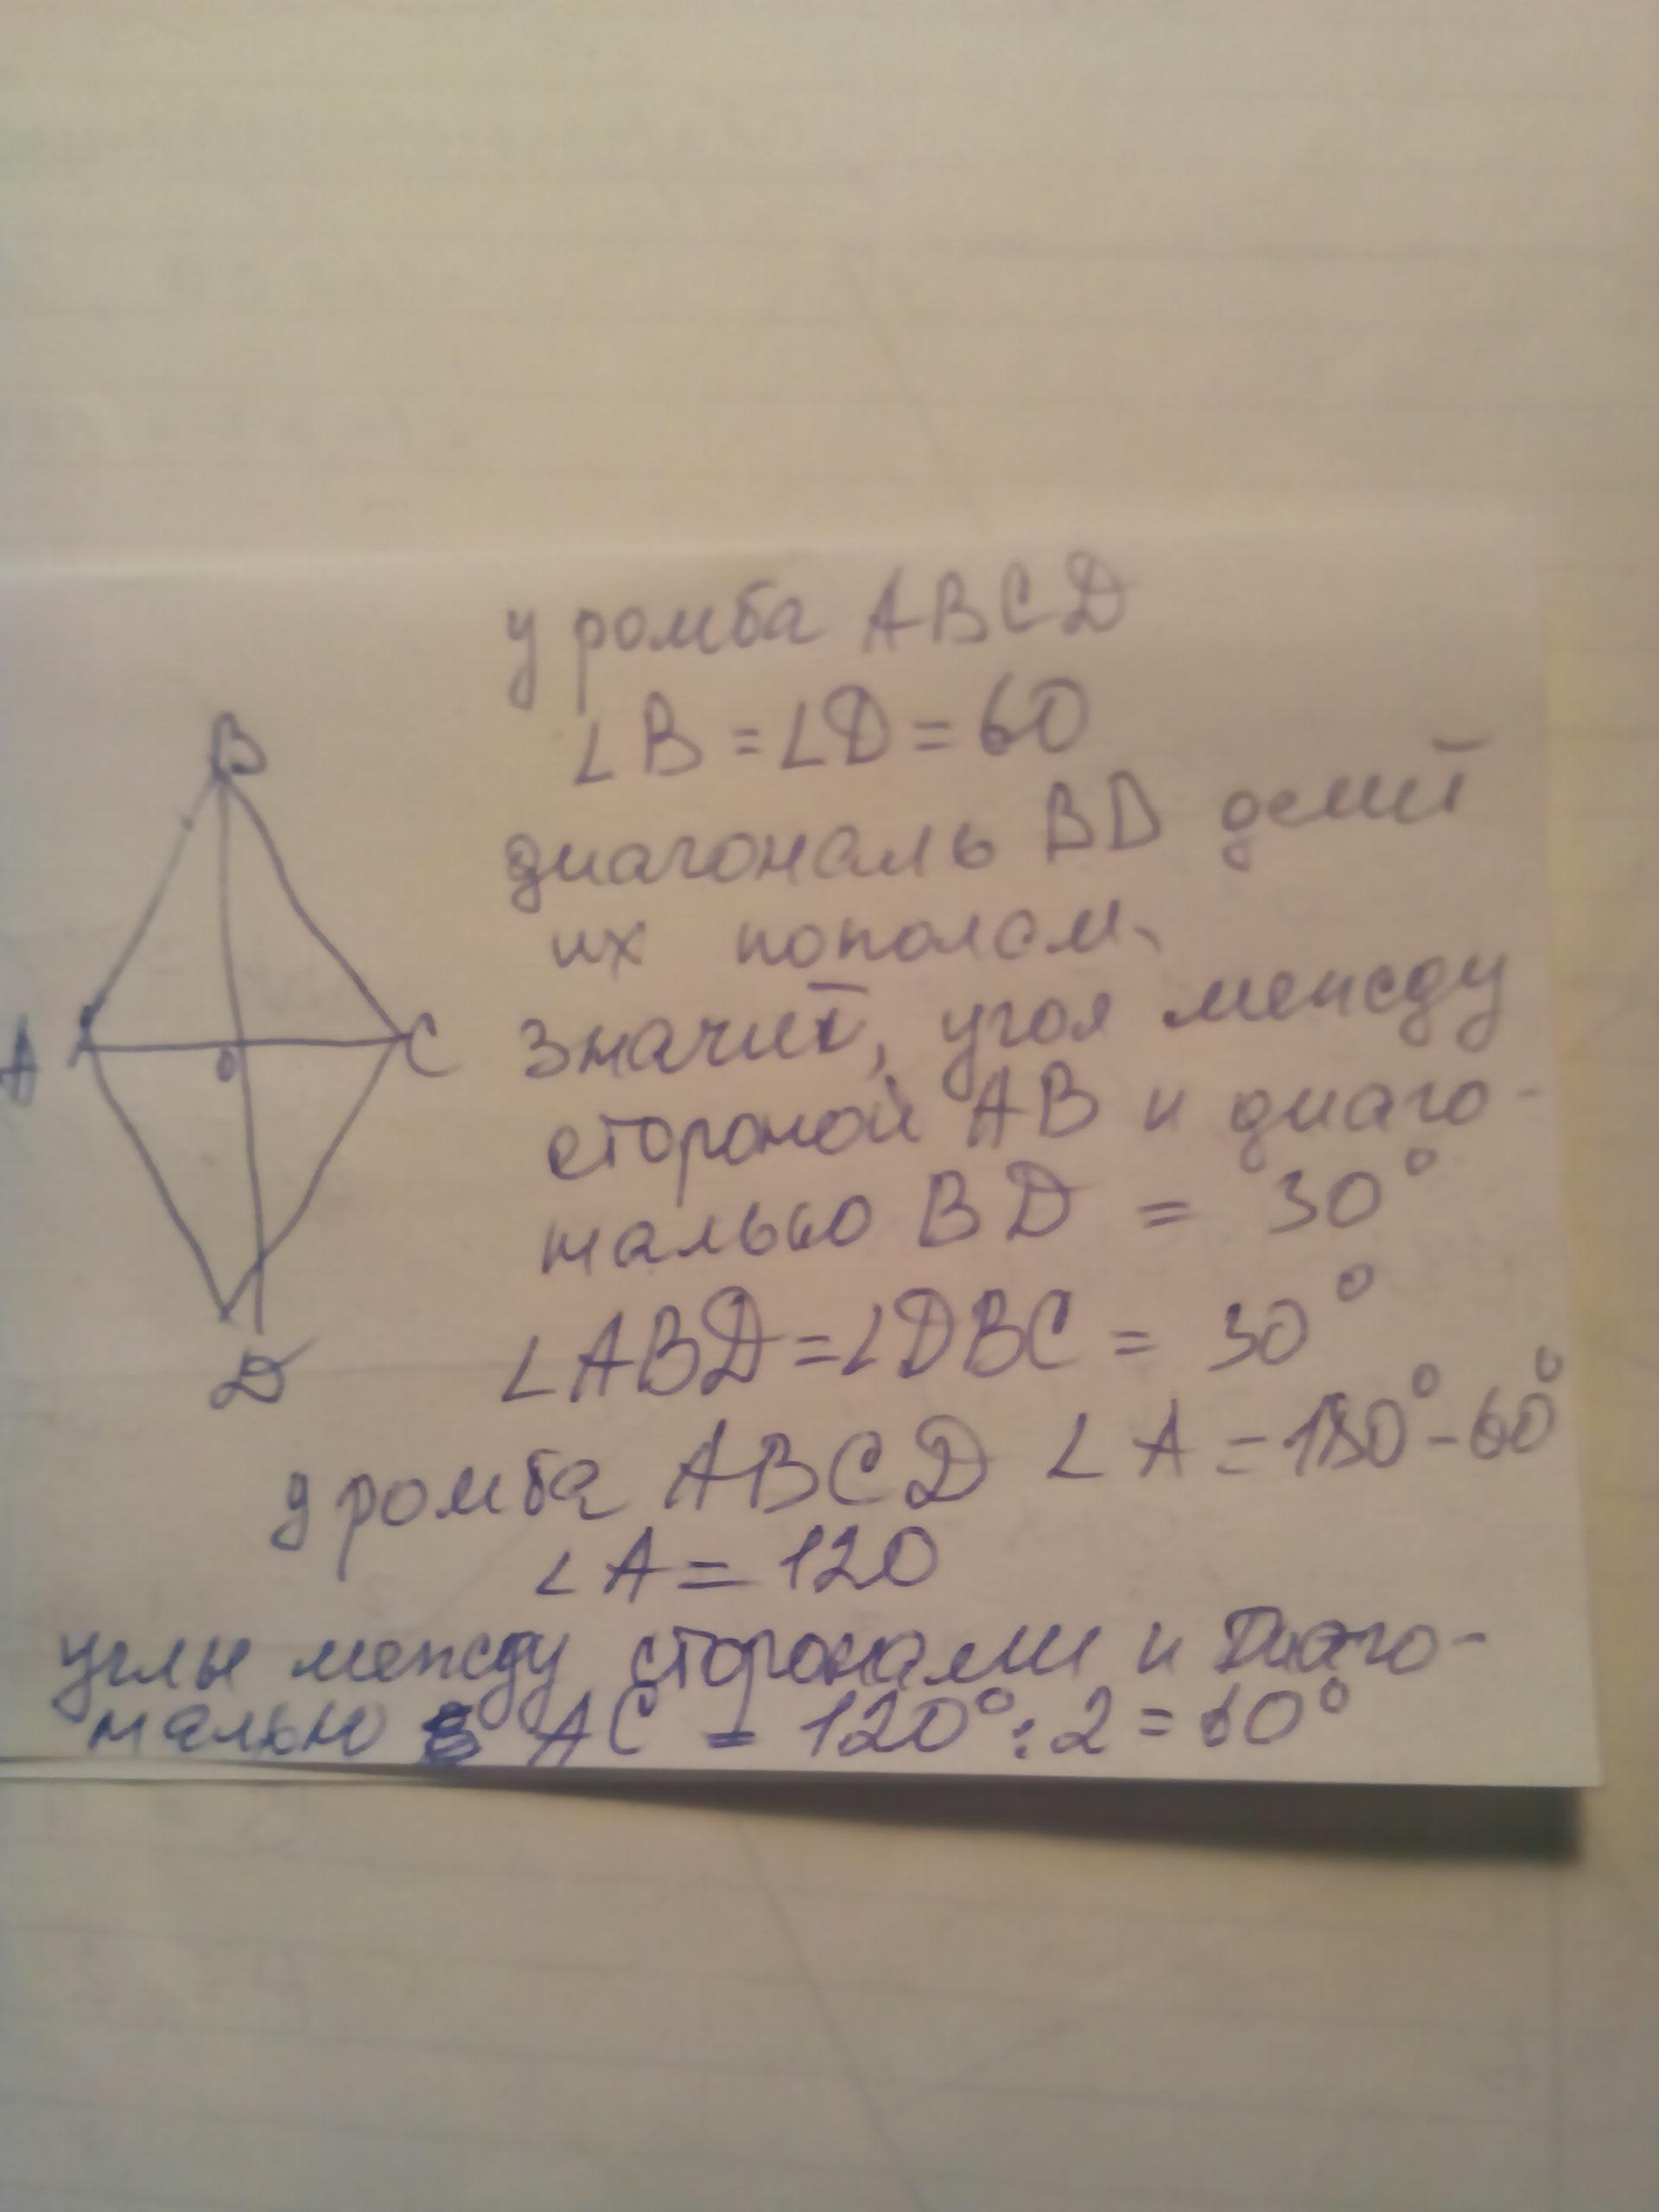 у ромба ABCD
∠B = ∠D = 60
диагональ BD делит
их пополам.
B
A
C
O
D
Значит, угол между
стороной AB и диаго-
налью BD = 30°
∠ABD = ∠DBC = 30°
у ромба ABCD ∠A = 180° - 60°
∠A = 120
углы между сторонами и Диаго-
налью AC = 120° : 2 = 60°